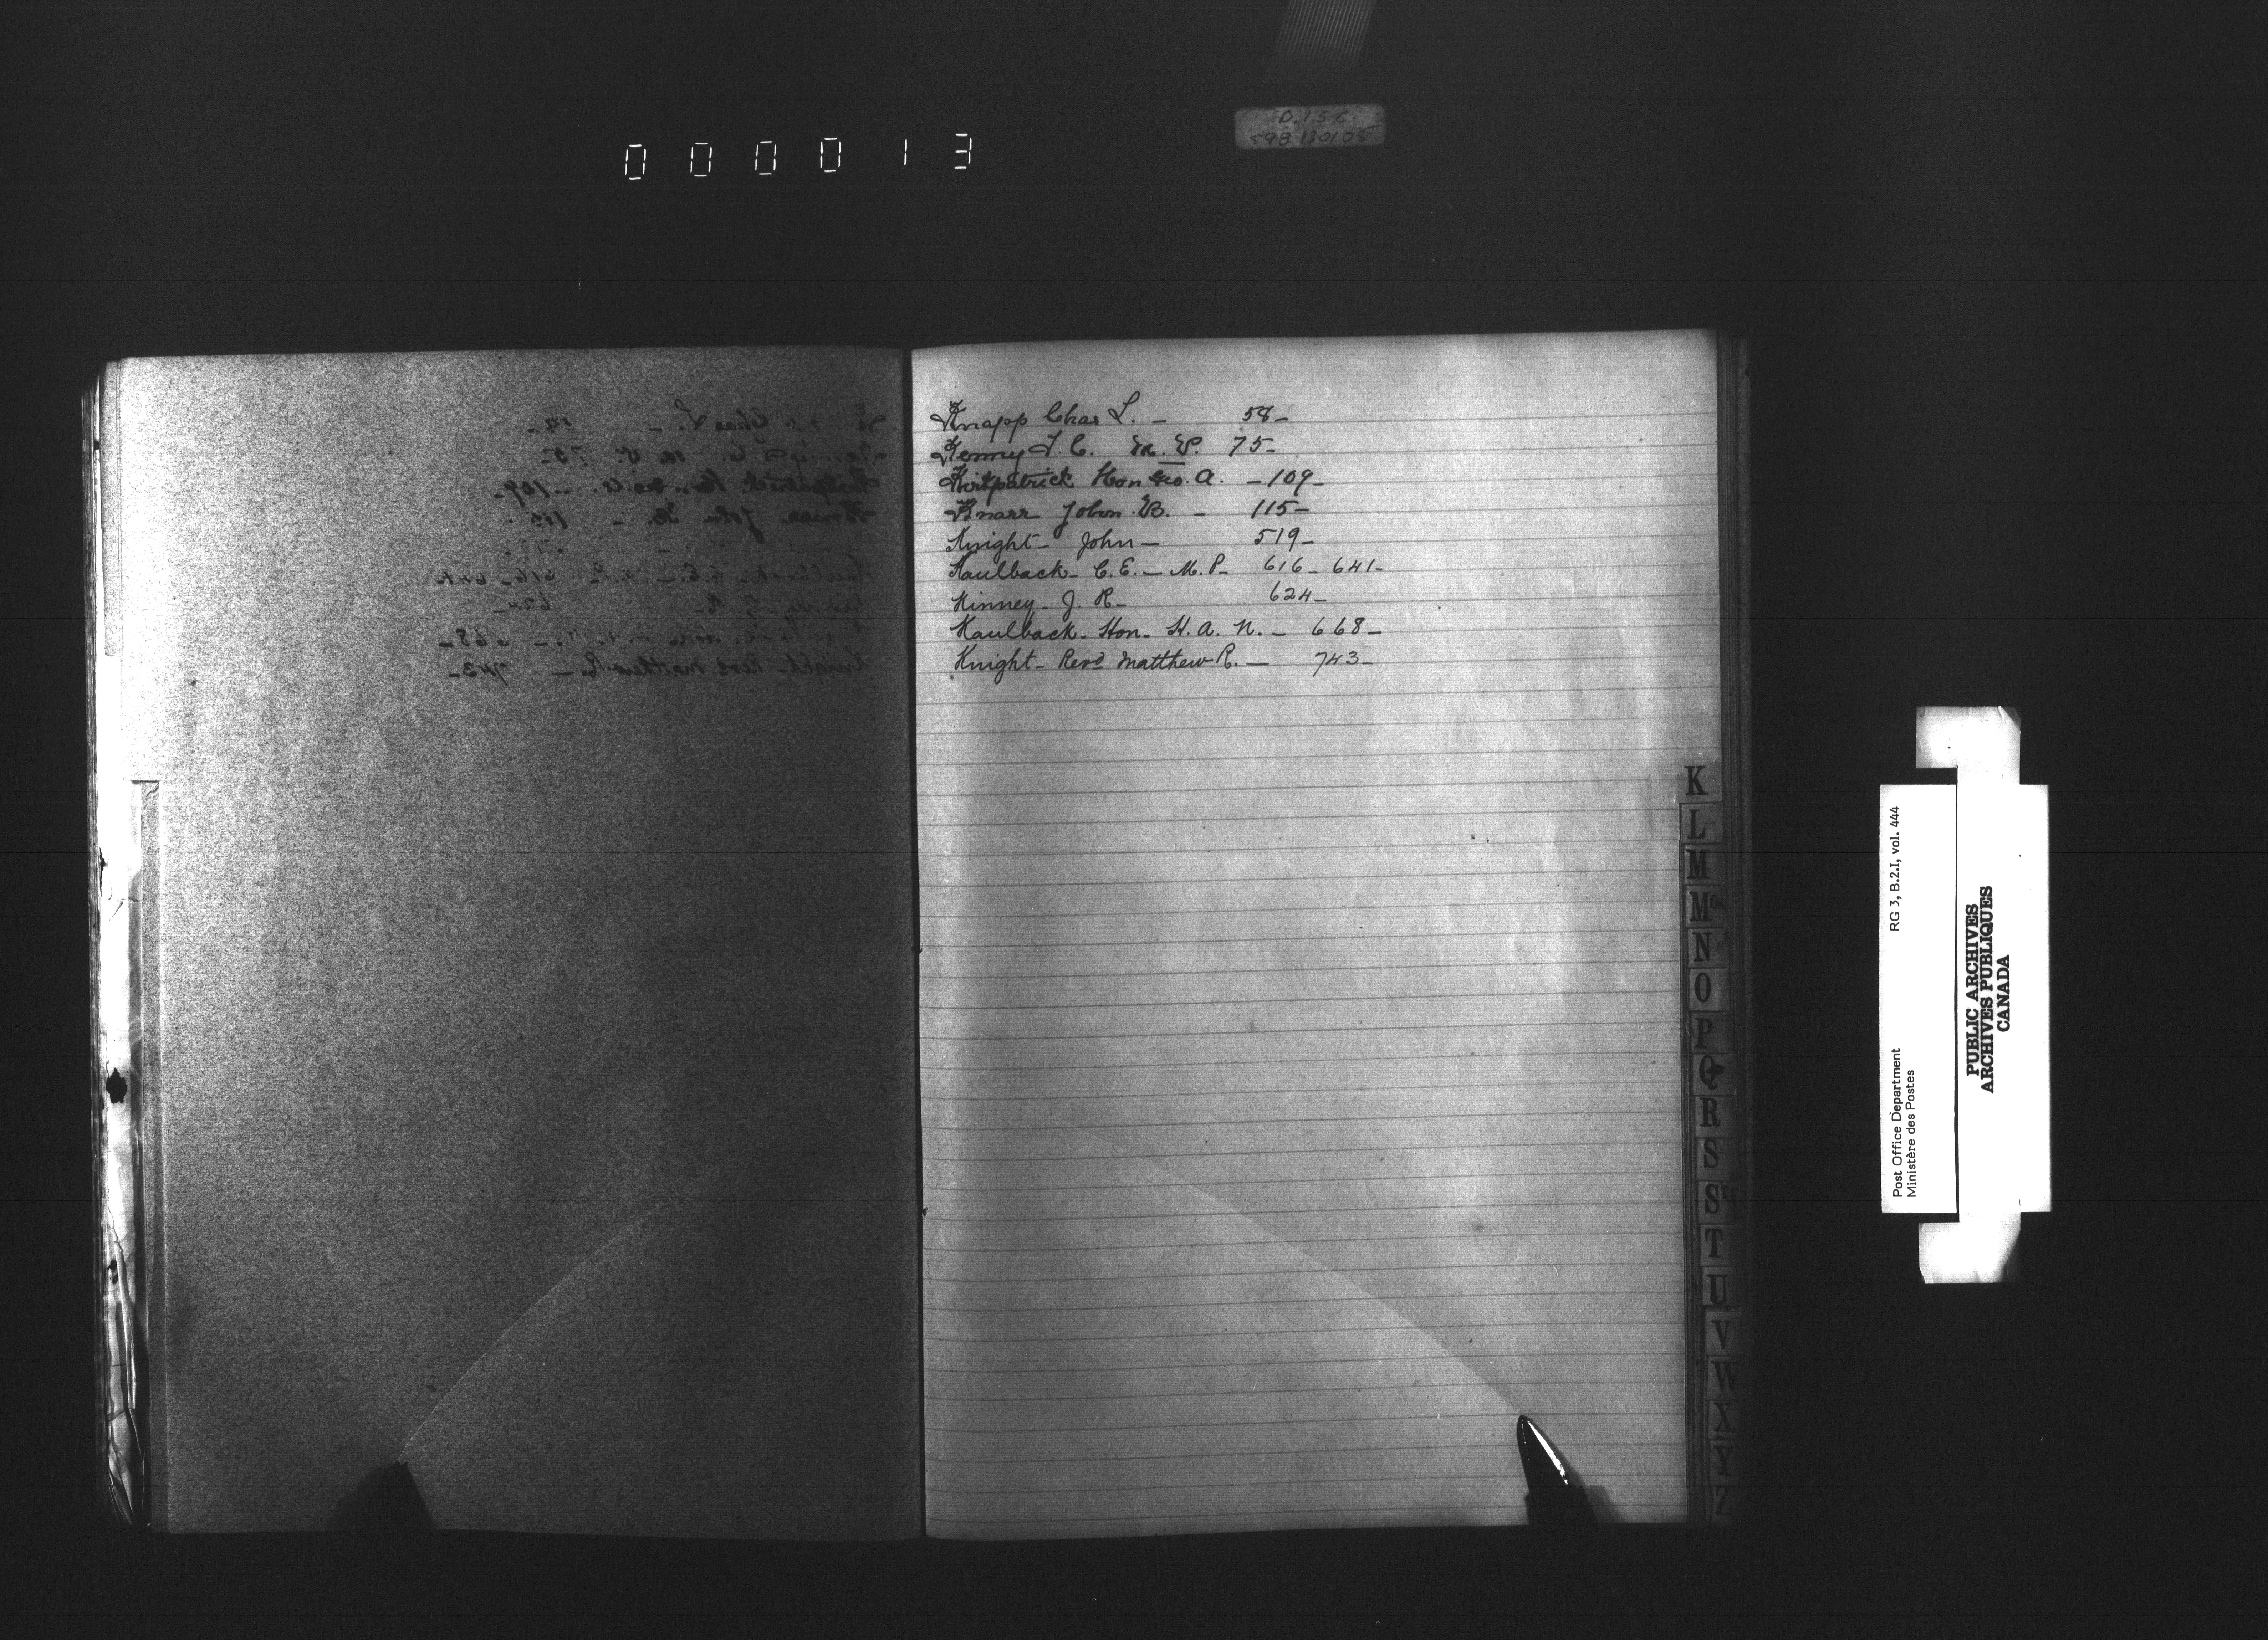 D.I.S.C.
598 130105
000013
Knapp Chas L. – 58 –
Kenny T. C. M. P. 75 –
Kirkpatrick Hon Geo. A. – 109 –
Knarr John B. – 115 –
Knight – John – 519 –
Kaulback – C. E. – M. P. – 616 – 641 –
Kinney – J. R – 624 –
Kaulback – Hon – H. A. N. – 668 –
Knight – Revd Matthew R. – 743 –
K
L
M
Mc
N
O
P
Q
R
S
St
T
U
V
W
X
Y
Z
RG 3, B.2.I, vol. 444
Post Office Department
Ministère des Postes
PUBLIC ARCHIVES
ARCHIVES PUBLIQUES
CANADA